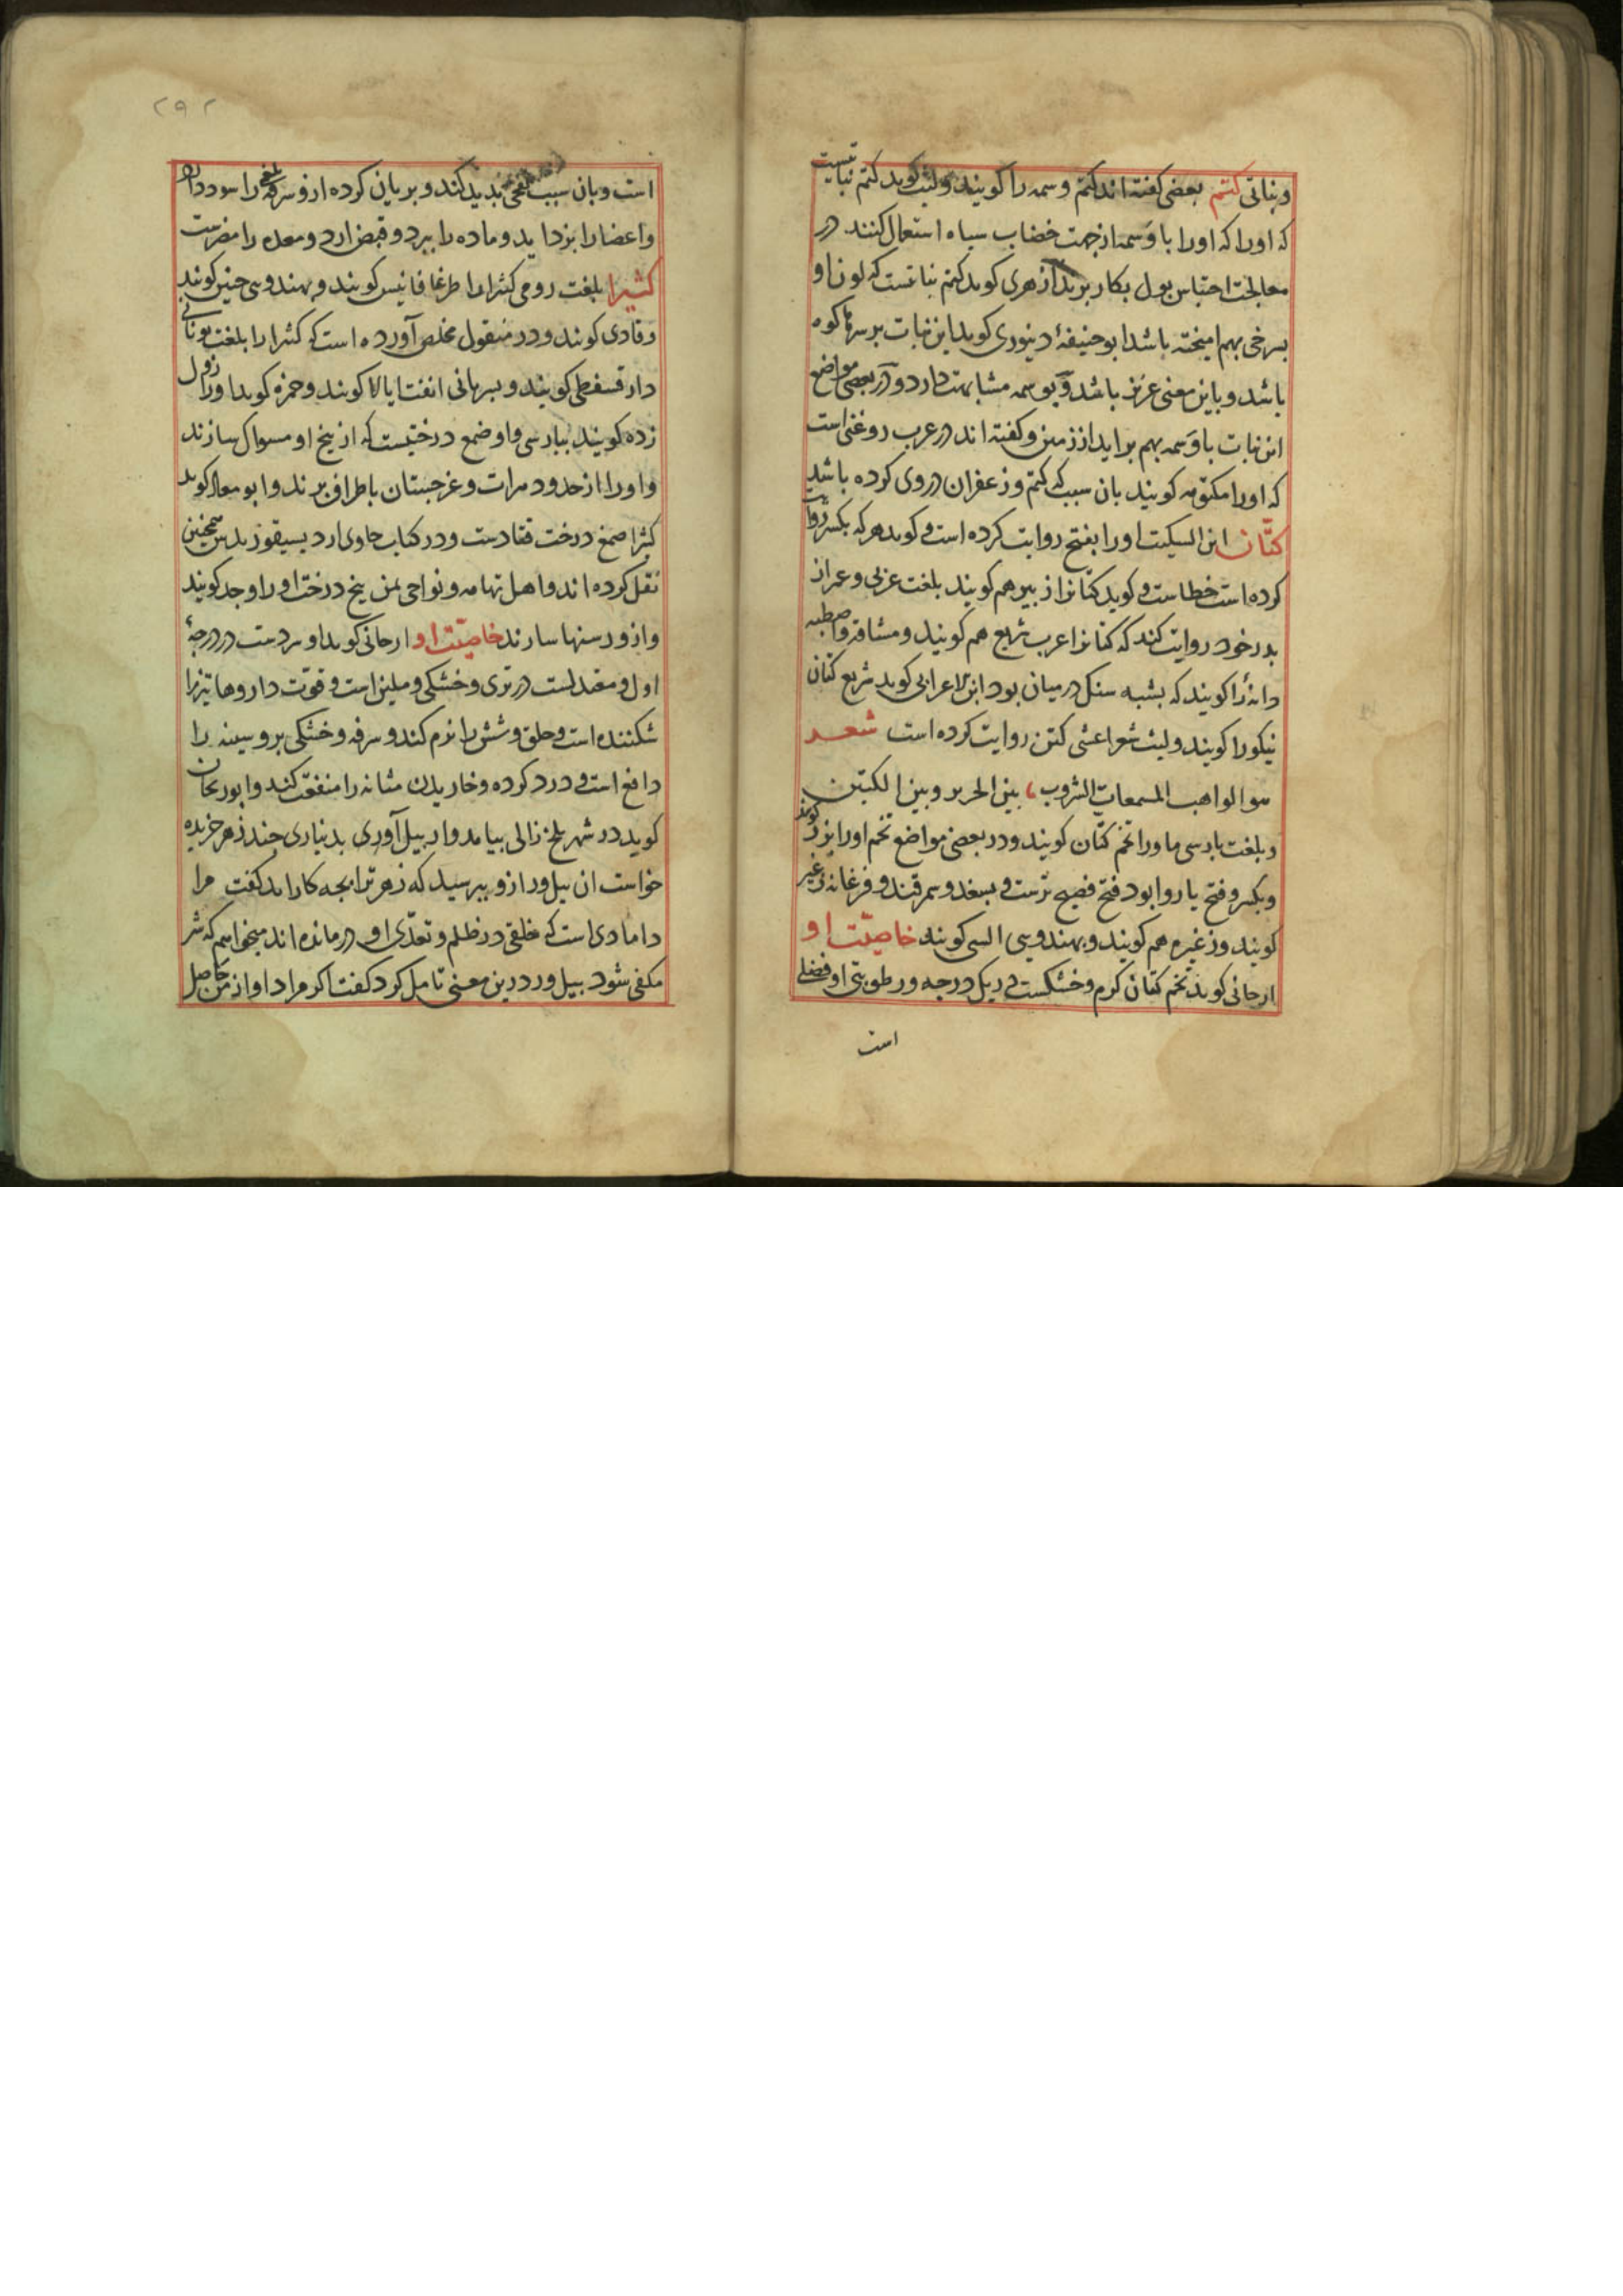 وبناتی کتم بعضی کفته اند کتم وسمه را کویند ولیث کوید کتم نباتیست
که اورا که اورا با وسمه از جهت خضاب سیاه استعمال کنند در
معالجت احتباس بول بکار برند ازهری کوید کتم نباتیست که لون او
بسرخی بهم امیخته باشد ابو حنیفهٔ دینوری کوید این نبات بر سرهاء کوه
باشد و باین معنی عزیز باشد و بوسمه مشابهت دارد و در بعضی مواضع
این نبات با وسمه بهم براید از زمین وکفته اند در عرب روغنی است
که اورا مکتومه کویند بان سبب که کتم وزعفران در وی کرده باشد
کتّان ابن السکیت اورا بفتح روایت کرده است و کوید هر که بکسر روایت
کرده است خطاست و کوید کتانرا زبیر هم کویند بلغت عربی و
پدر خود روایت کند که کتانرا عرب شریع هم کویند ومشاقه
دانهٔ را کویند که بشبه سنک درمیان بود ابن الاعرابی کوید شریع کتان
نیکو را کویند ولیث شعر اعشی کتن روایت کرده است شعر
هو الواهب المسمعات الشروب بین الحریر وبین الکتن
وبلغت پارسی ماورا تخم کتان کویند ودر بعضی مواضع تخم اورا بزرک کویند
وبکسر وفتح با روا بود فتح فصیح ترست و بسغد وسمرقند وفرغانه زغیر
کویند وزغیره هم کویند وبهندوی السی کویند خاصیّت او
ارجانی کوید تخم کتان کرم وخشکست در یک درجه ورطوبتی او فضلی
است
۲۹۲
است وبان سبب نفخی پدید کند وبریان کرده ازو سرفه بلغمی را سود دارد
واعضا را بزداید وماده را ببرد وقبض ارد ومعده را مضرست
کثیرا بلغت رومی کثیرا را طرغافانیس کویند وبهندوی چنین کویند
وقادی کویند ودر منقول مخلص آورده است که کثیرا را بلغت یونانی
دارقسفطی کویند وبسریانی انفتا یالا کویند وحمزه کوید اورا زول
زده کویند بپارسی واو صمغ درختیست که از بیخ او مسواک سازند
واورا از حدود هرات وغرجستان باطراف برند وابو معاذ کوید
کثیرا صمغ درخت قتادست ودر کتاب حاوی ارد بسیقوریدس همچنین
نقل کرده اند واهل تهامه ونواحی یمن بیخ درخت اورا وجد کویند
وازو رسنها سازند خاصیّت او ارجانی کوید او سردست در درجهٔ
اول ومعتدلست در تری وخشکی وملین است وقوّت داروها تیز را
شکننده است وحلق وشش را نرم کند وسرفه وخشکی برو سینه را
دافع است و درد کرده وخاریدن مثانه را منفعت کند وابو ریحان
کوید در شهر بلخ زالی بیامد واز پیل آوری بدیناری چند زهر خریده
خواست ان پیل‌ور ازو بپرسید که زهر ترا بچه کار اید کفت مرا
دامادی است که خلقی در ظلم وتعدّی او درمانده اند میخواهم که شر
مکفی شود پیل‌ور درین معنی تامل کرد کفت اکر مراد او از من حاصل